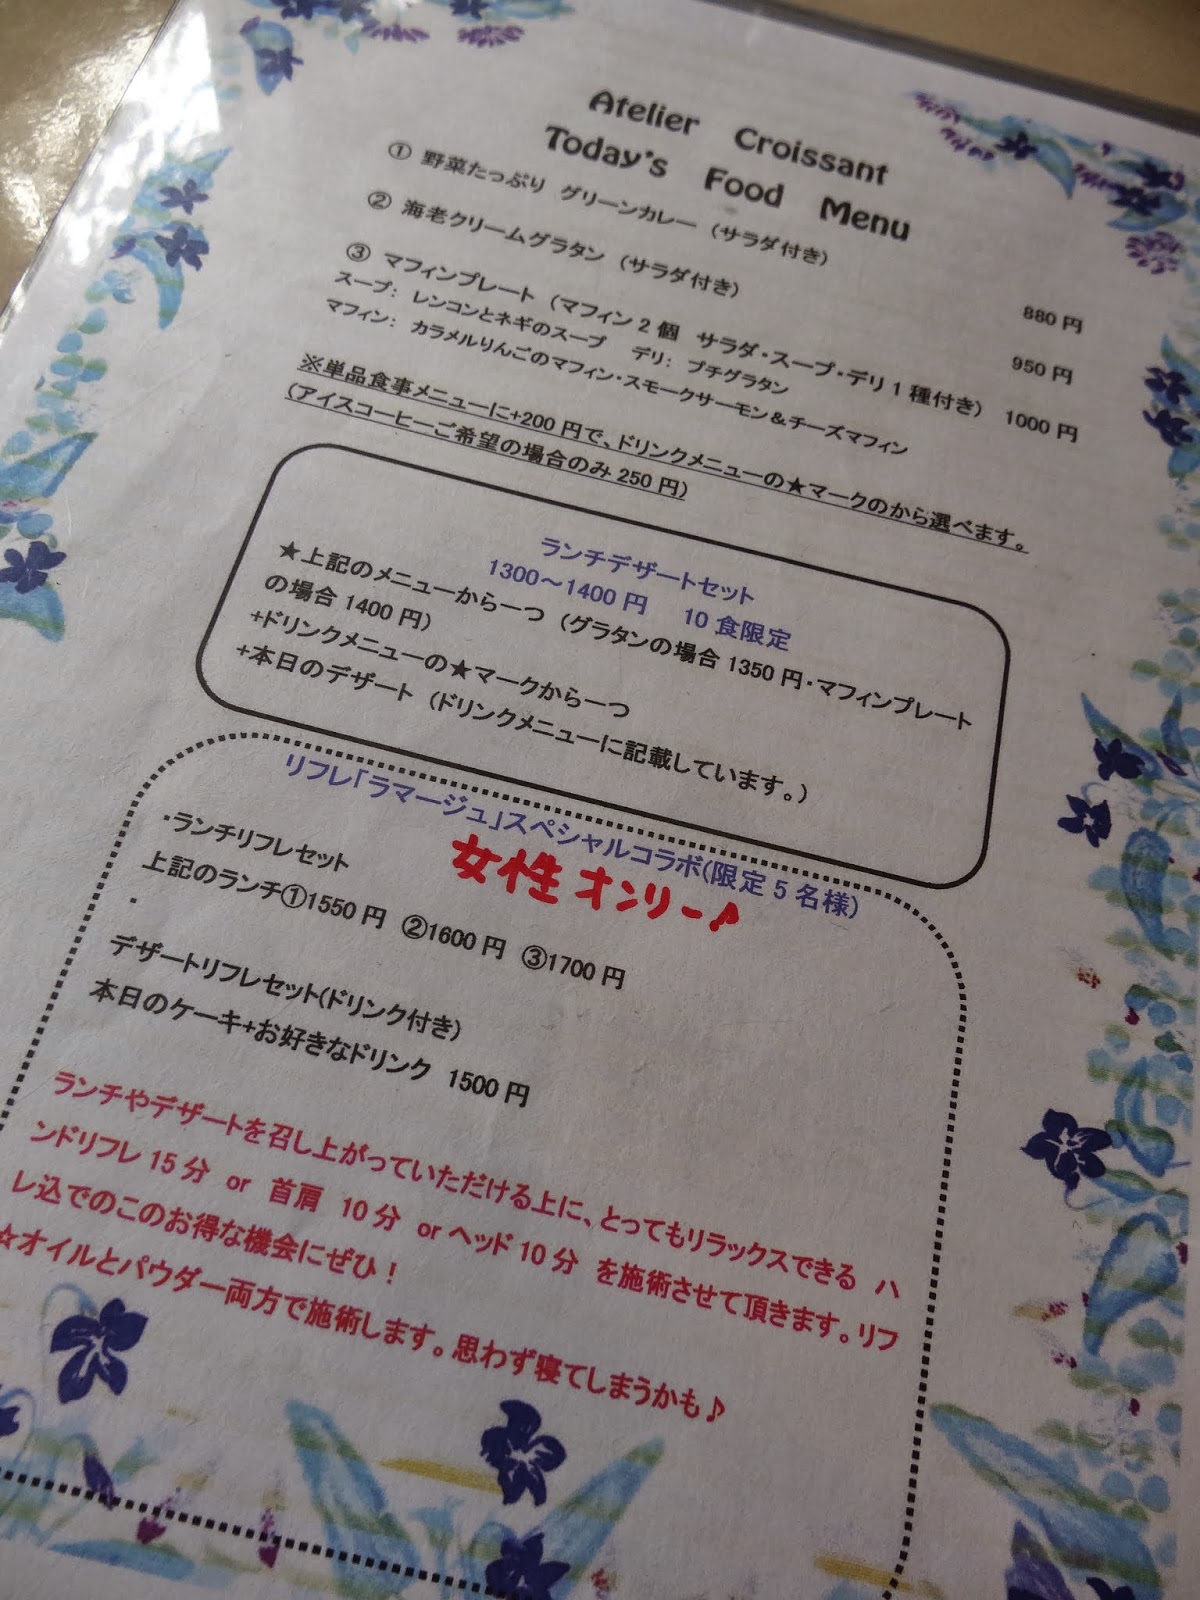 Atelier Croissant
Today's Food Menu
① 野菜たっぷり グリーンカレー (サラダ付き) 880円
② 海老クリームグラタン (サラダ付き) 950円
③ マフィンプレート (マフィン2個 サラダ・スープ・デリ1種付き) 1000円
スープ: レンコンとネギのスープ デリ: プチグラタン
マフィン: カラメルりんごのマフィン・スモークサーモン&チーズマフィン
※単品食事メニューに+200円で、ドリンクメニューの★マークのから選べます。
(アイスコーヒーご希望の場合のみ250円)
ランチデザートセット
1300～1400円 10食限定
★上記のメニューから一つ (グラタンの場合1350円・マフィンプレート
の場合1400円)
+ドリンクメニューの★マークから一つ
+本日のデザート (ドリンクメニューに記載しています。)
リフレ「ラマージュ」スペシャルコラボ(限定5名様)
女性オンリー♪
・ランチリフレセット
上記のランチ①1550円 ②1600円 ③1700円
・
デザートリフレセット(ドリンク付き)
本日のケーキ+お好きなドリンク 1500円
ランチやデザートを召し上がっていただける上に、とってもリラックスできる ハ
ンドリフレ15分 or 首肩 10分 orヘッド10分 を施術させて頂きます。リフ
レ込でのこのお得な機会にぜひ!
☆オイルとパウダー両方で施術します。思わず寝てしまうかも♪